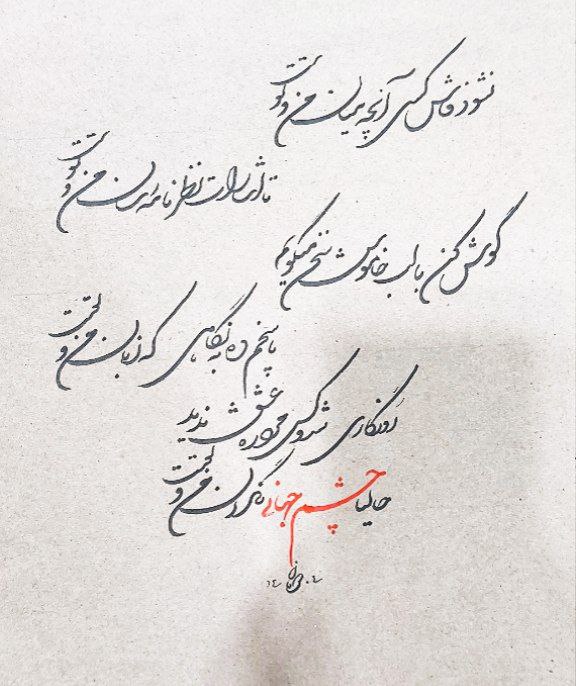 نشود فاش کسی آنچه میان من و توست
تا اشارات نظر نامه رسان من و توست
گوش کن با لب خاموش سخن میگویم
پاسخم ده به نگاهی که زبان من و توست
روزگاری شد و کس مرد ره عشق ندید
حالیا چشم جهانی نگران من و توست